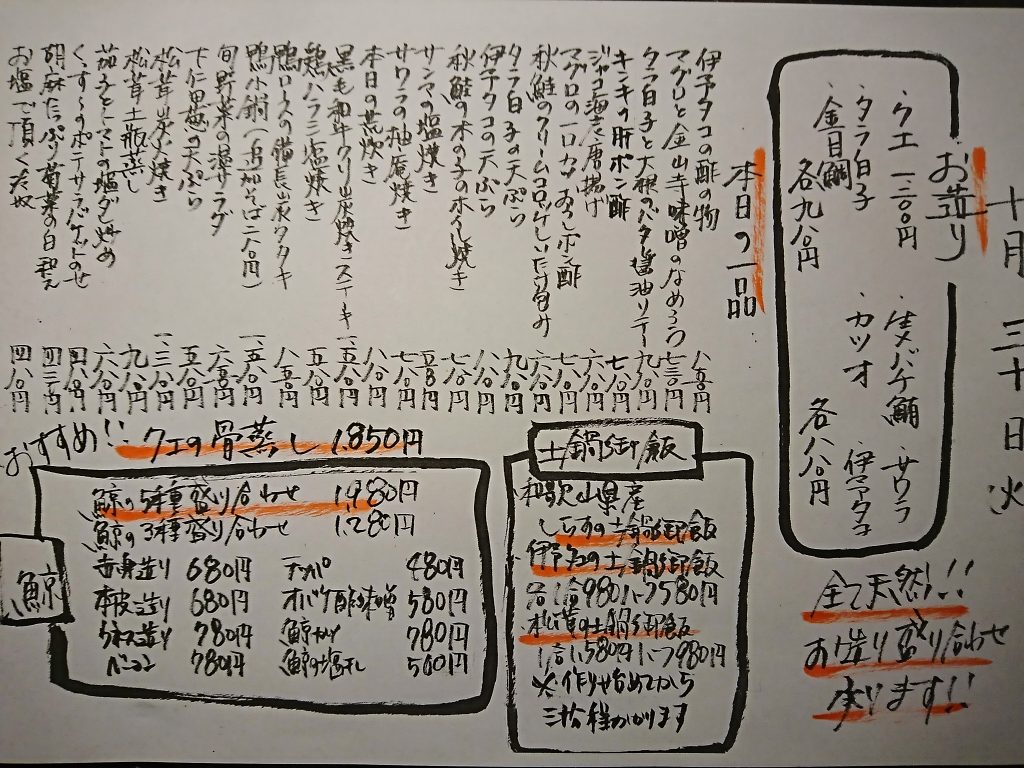 十月三十日火
お造り
・クエ 一二〇〇円
・タラ白子
・金目鯛
各九八〇円
・生メバチ鮪
・サワラ
カツオ
・伊予タコ
各八八〇円
全て天然!!
お造り盛り合わせ
承ります!!
本日の一品
伊予タコの酢の物 八五〇円
マグロと金山寺味噌のなめろう 七三〇円
タラ白子と大根のバタ醤油ソテー 九八〇円
キンキの肝ポン酢 七八〇円
ジャコ海老唐揚げ 六八〇円
マグロの一口カツおろしポン酢 七八〇円
秋鮭のクリームコロッケしいたけ包み 六八〇円
タラ白子の天ぷら 九八〇円
伊予タコの天ぷら 八八〇円
秋鮭の木の子のホイル焼き 七八〇円
サンマの塩焼き 五八〇円
サワラの柚庵焼き 七八〇円
本日の煮炊き 八八〇円
黒毛和牛クリ炭焼ステーキ 一、五八〇円
鶏ハラミ塩焼き 五八〇円
鴨ロースの備長炭タタキ 八五〇円
鴨小鍋(追加そば二八〇円) 一、五八〇円
旬野菜の温サラダ 六五〇円
下仁田葱の天ぷら 五八〇円
松茸炭火焼き 一、三八〇円
松茸土瓶蒸し 九八〇円
茄子とトマトの塩ダレ炒め 六八〇円
くずし芋のポテサラバゲットのせ 四八〇円
胡麻たっぷり菊菜の白和え 四三〇円
お塩で頂くた奴 四八〇円
おすすめ!! クエの骨蒸し 1,850円
鯨
鯨の5種盛り合わせ 1,980円
鯨の3種盛り合わせ 1,280円
赤身造り 680円
本皮造り 680円
ウネス造り 780円
ベーコン 780円
テッパ 480円
オバケ酢味噌 580円
鯨カツ 780円
鯨の塩干し 500円
土鍋御飯
和歌山県産
しらすの土鍋御飯
伊予タコの土鍋御飯
各一合980円 二合1,580円
松茸の土鍋御飯
一合1,580円 二合1,980円
※作り始めてから
三拾程かかります